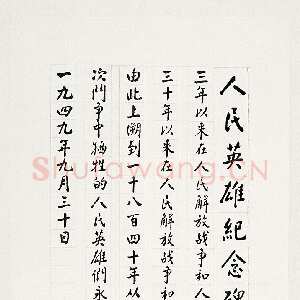 人民英雄紀念碑
三年以来在人民解放战争和人
三十年以来在人民解放战争
由此上溯到一千八百四十年从
次鬥争中牺牲的人民英雄們永
一九四九年九月三十日
Shufawang.CN